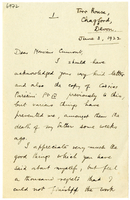 Torr House,
Chagford,
Devon.
June 8, 1922
Dear Monsieur Cumont,
I should have
acknowledged your very kind letter
and also the copy of
previously to this
but various things have
prevented me, amongst them the
death of my father some weeks
ago.
I appreciate very much the
good things which you have
said about myself, but feel
a thousand regrets that I
could not the work